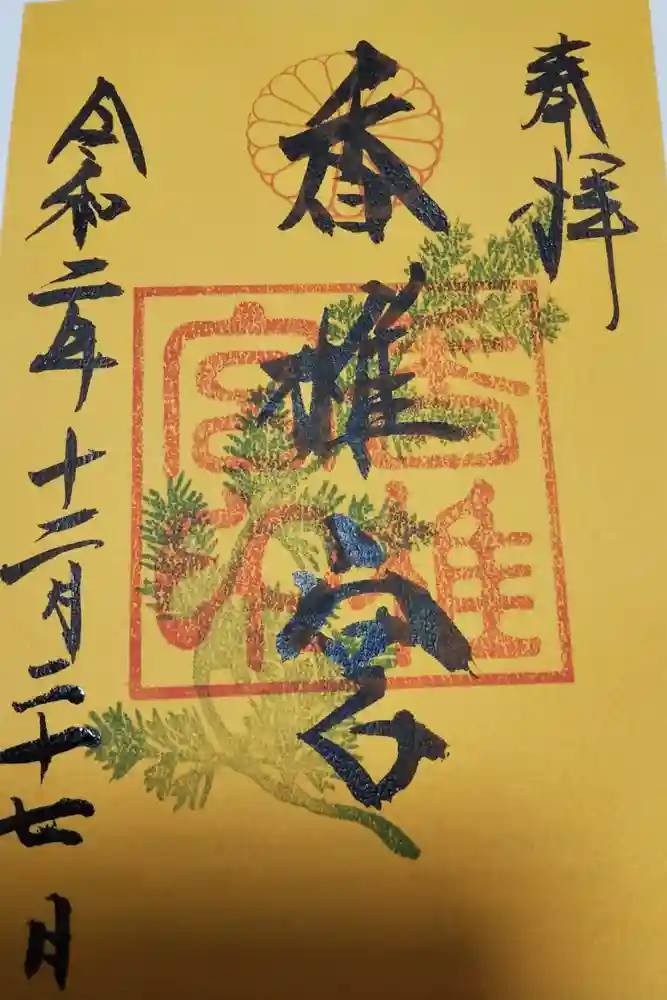 奉拝
香椎宮
令和二年十二月二十七日
香椎宮印